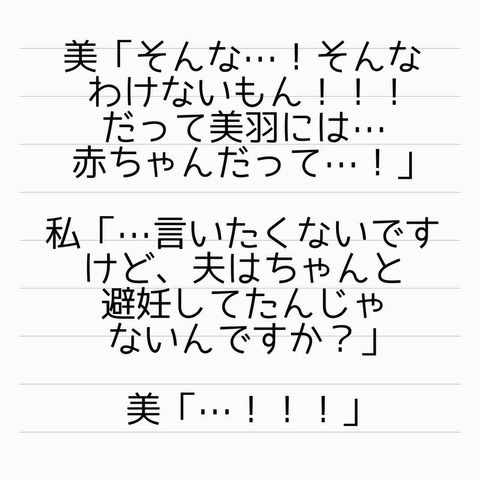 美「そんな…！そんな
わけないもん！！！
だって美羽には…
赤ちゃんだって…！」
私「…言いたくないです
けど、夫はちゃんと
避妊してたんじゃ
ないんですか？」
美「…！！！」